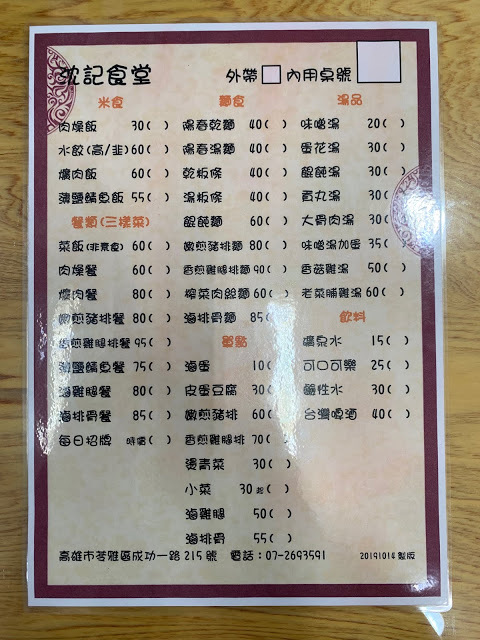 沈記食堂 外帶 內用桌號
米食
肉燥飯 30( )
水餃(高/韭)60( )
爌肉飯 60( )
薄鹽鯖魚飯 55( )
餐類(三樣菜)
菜飯(非素食) 60( )
肉燥餐 60( )
爌肉餐 80( )
嫩煎豬排餐 80( )
香煎雞腿排餐 95( )
薄鹽鯖魚餐 75( )
滷雞腿餐 80( )
滷排骨餐 85( )
每日招牌 時價( )
麵食
陽春乾麵 40( )
陽春湯麵 40( )
乾板條 40( )
湯板條 40( )
餛飩麵 60( )
嫩煎豬排麵 80( )
香煎雞腿排麵 90( )
榨菜肉絲麵 60( )
滷排骨麵 85( )
單點
滷蛋 10( )
皮蛋豆腐 30( )
嫩煎豬排 60( )
香煎雞腿排 70( )
燙青菜 30( )
小菜 30起( )
滷雞腿 50( )
滷排骨 55( )
湯品
味噌湯 20( )
蛋花湯 30( )
餛飩湯 30( )
貢丸湯 30( )
大骨肉湯 30( )
味噌湯加蛋 35( )
香菇雞湯 50( )
老菜脯雞湯 60( )
飲料
礦泉水 15( )
可口可樂 25( )
鹼性水 30( )
台灣啤酒 40( )
高雄市苓雅區成功一路 215 號 電話：07-2693591 20191014 製版